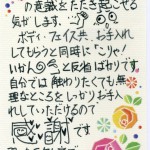 の意識をたたき起こせる
気がします。
ボディ・フェイス共、お手入れ
してもらうと同時に「こりゃ!
いかん」と反省ばかりです。
自分では触わりたくても無
理なところをしっかりお手入
れしていただけるので
感謝です